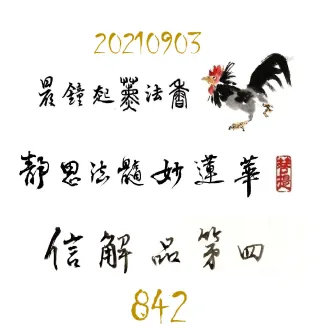 20210903
晨鐘起薰法香
靜思法髓妙蓮華
信解品第四
842